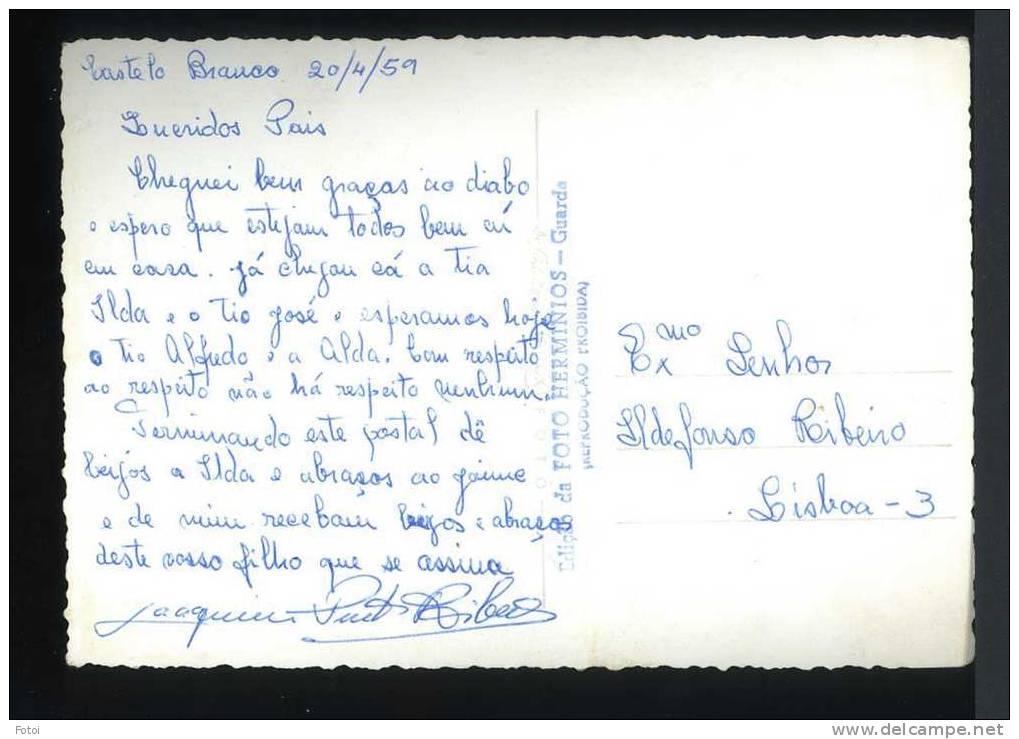 Castelo Branco 20/4/59
Queridos Pais
Cheguei bem graças ao diabo
e espero que estejam todos bem aí
em casa. Já chegou cá a tia
Ilda e o tio José e esperamos hoje
o tio Alfredo e a Alda. Com respeito
ao respeito não há respeito nenhum.
Terminando este postal dê
beijos a Ilda e abraços ao Jaime
e de mim recebam beijos e abraços
deste vosso filho que se assina
Joaquim Pinto Ribeiro
Edição da FOTO HERMINIOS — Guarda
(REPRODUÇÃO PROIBIDA)
Exmo Senhor
Ildefonso Ribeiro
Lisboa - 3
Fotoi
www.delcampe.net